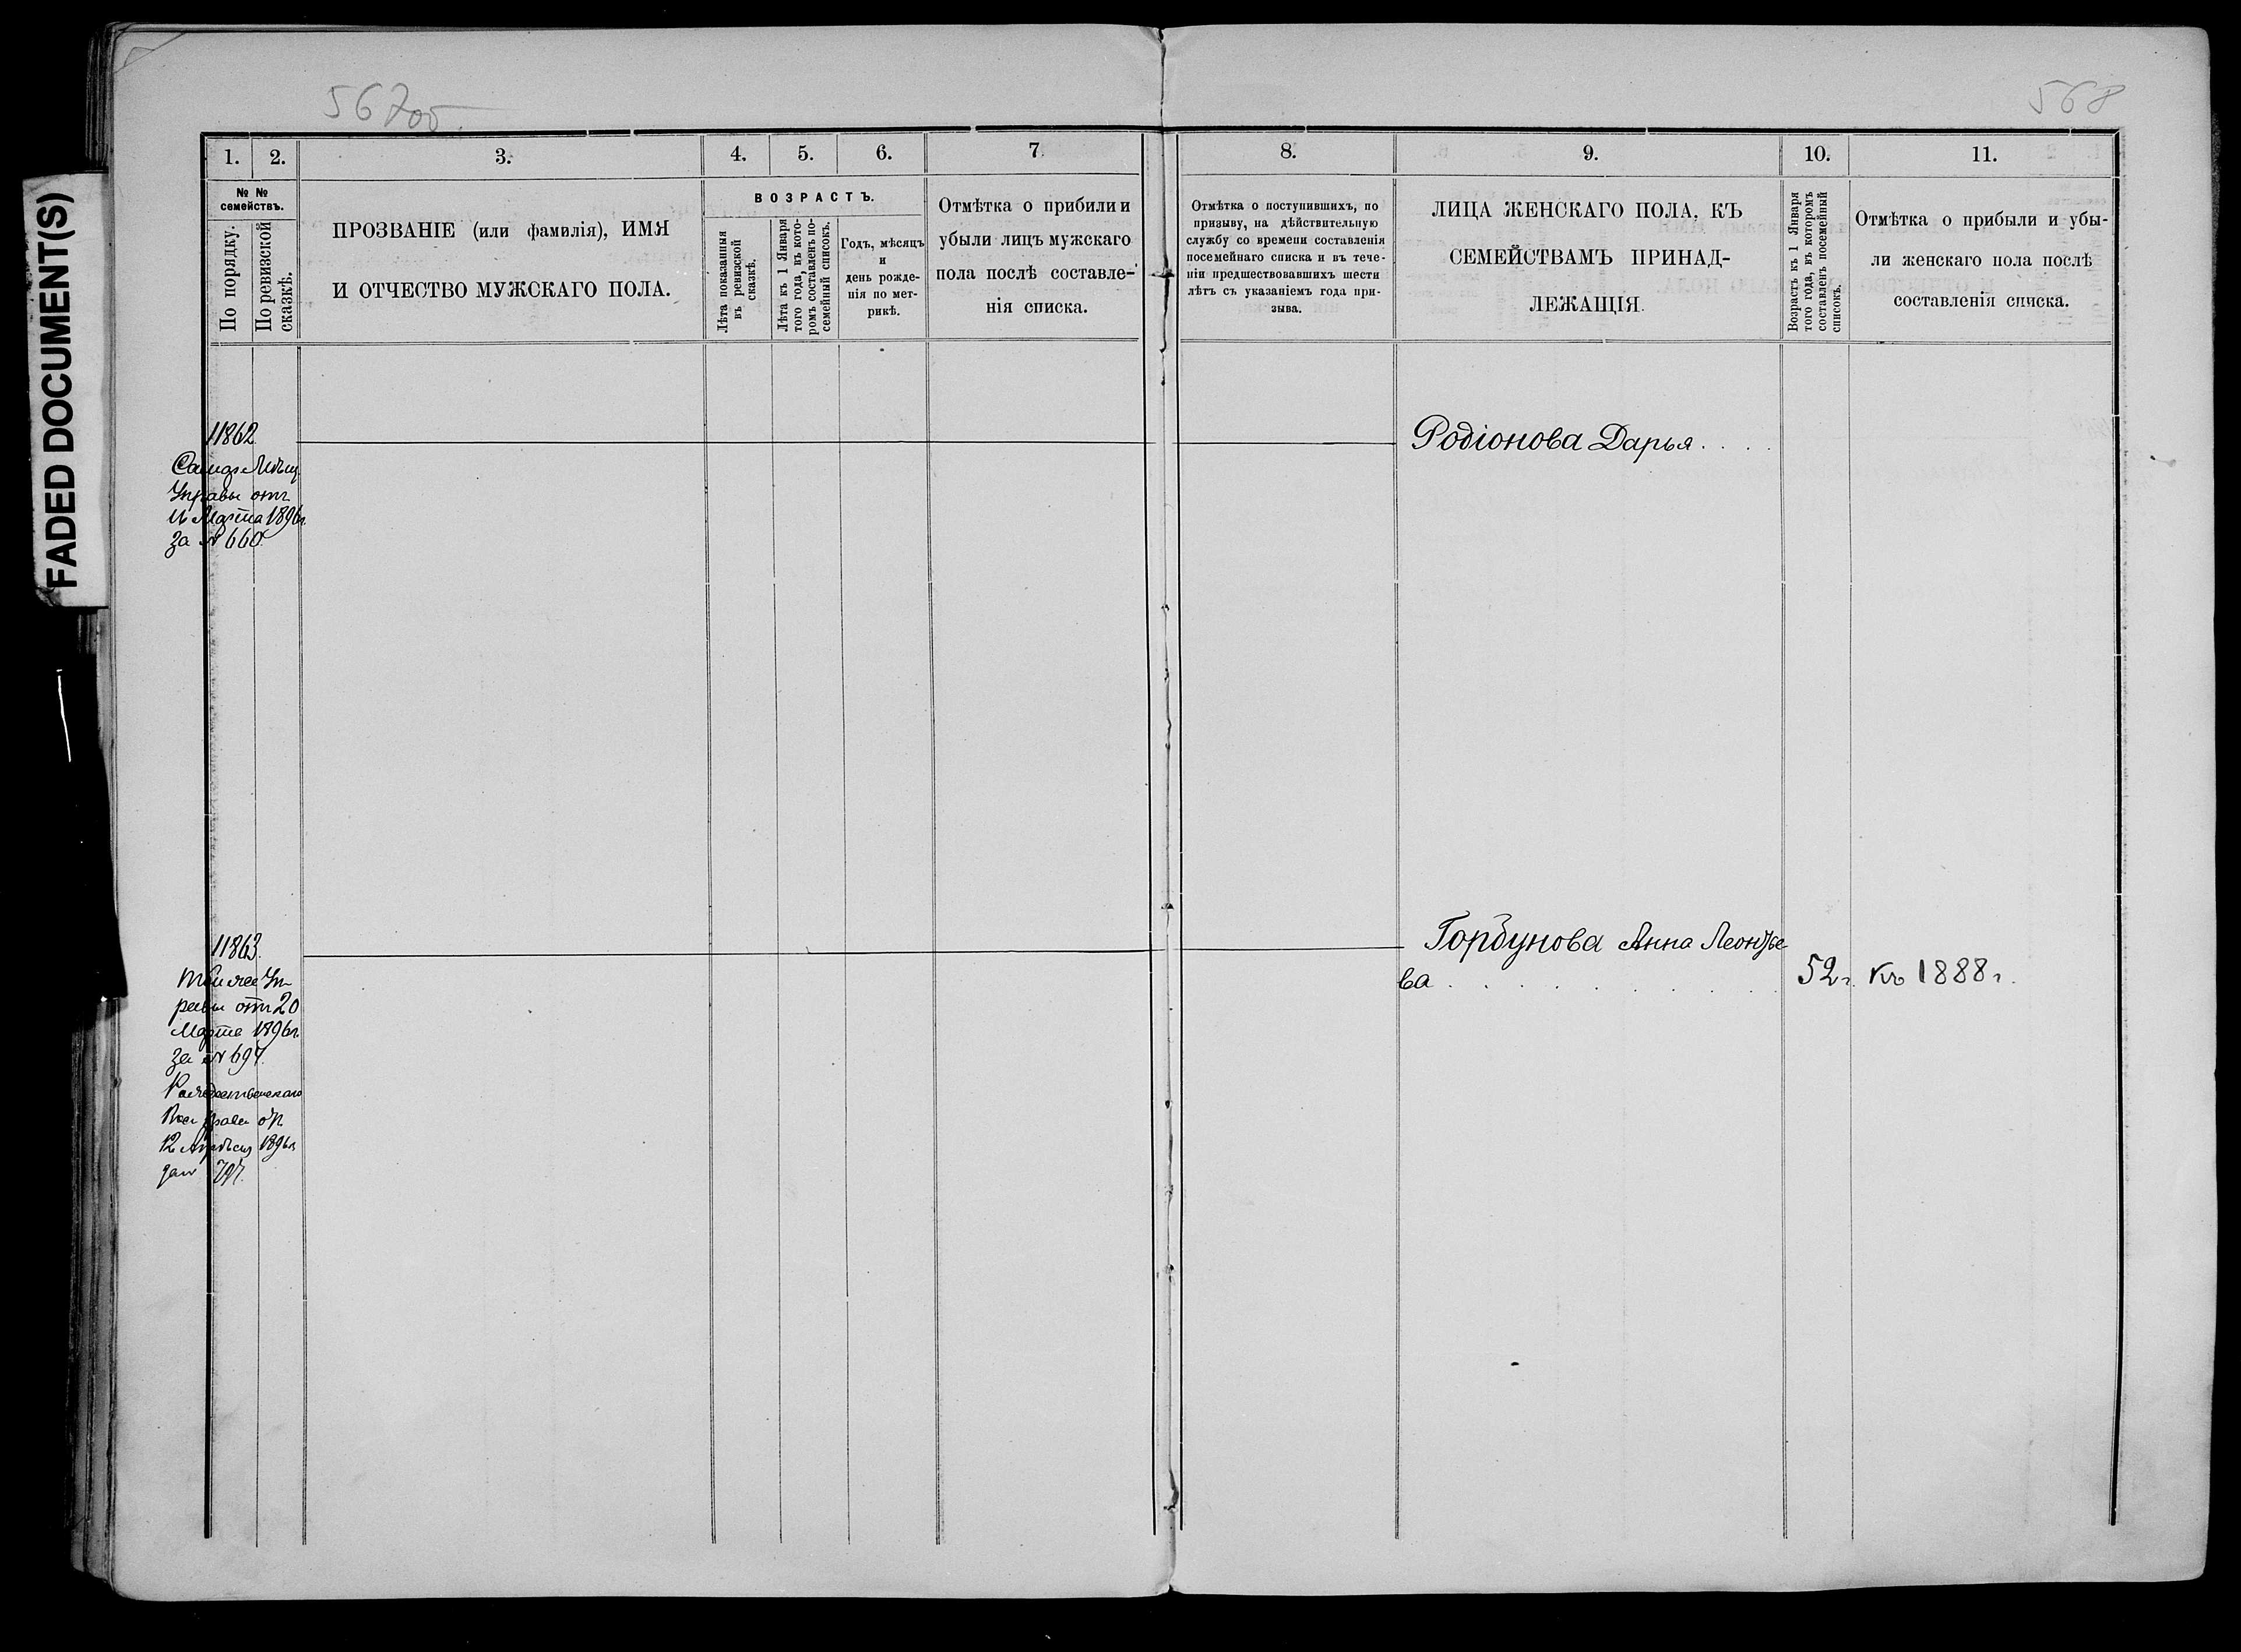 FADED DOCUMENT(S)
567об.
568
1.
2.
3.
4.
5.
6.
7
8.
9.
10.
11.
№ №
семействъ.
По порядку.
По ревизской
сказкѣ.
ПРОЗВАНІЕ (или фамилія), ИМЯ
И ОТЧЕСТВО МУЖСКАГО ПОЛА.
ВОЗРАСТЪ.
Лѣта показанныя
въ ревизской
сказкѣ.
Лѣта къ 1 Января
того года, въ кото-
ромъ составленъ по-
семейный списокъ.
Годъ, мѣсяцъ
и
день рожде-
нія по мет-
рикѣ.
Отмѣтка о прибили и
убыли лицъ мужскаго
пола послѣ составле-
нія списка.
Отмѣтка о поступившихъ, по
призыву, на дѣйствительную
службу со времени составленія
посемейнаго списка и въ тече-
ніи предшествовавшихъ шести
лѣтъ съ указаніемъ года при-
зыва.
ЛИЦА ЖЕНСКАГО ПОЛА, КЪ
СЕМЕЙСТВАМЪ ПРИНАД-
ЛЕЖАЩІЯ.
Возрастъ къ 1 Января
того года, въ которомъ
составленъ посемейный
списокъ.
Отмѣтка о прибыли и убы-
ли женскаго пола послѣ
составленія списка.
11862
Родіонова Дарья . . . .
Управы отъ
Марта 1896г.
за № 660
11863.
Горбунова Анна Леонтье
ва . . . . . . . . . .
52г.
къ 1888г.
отъ 20
Марта 1896г.
за № 694.
1896г.